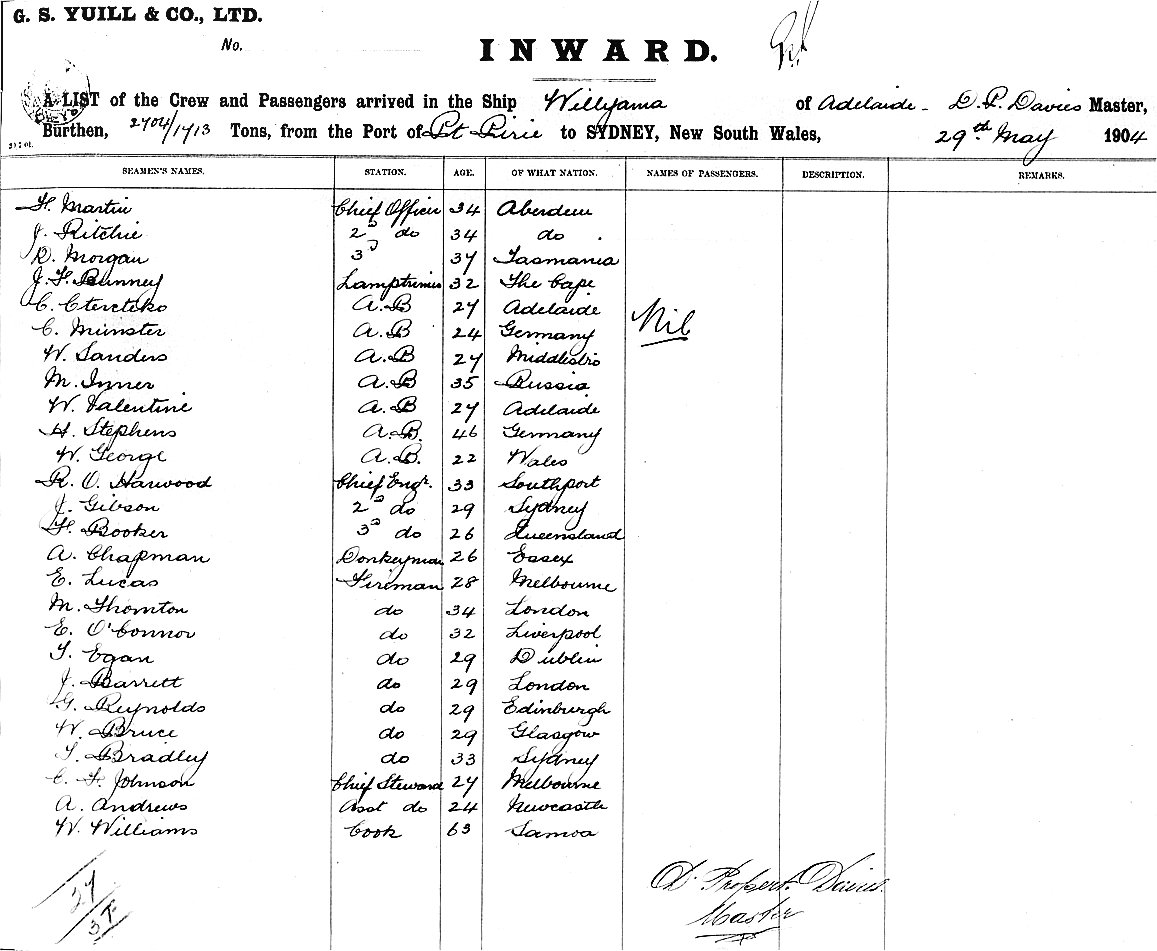 G. S. YUILL & CO., LTD.
No.
INWARD.
A LIST of the Crew and Passengers arrived in the Ship Willyama of Adelaide - D. P. Davies Master,
Burthen, 2704/1713 Tons, from the Port of Pt Pirie to SYDNEY, New South Wales, 29th May 1904
SEAMEN'S NAMES. STATION. AGE. OF WHAT NATION. NAMES OF PASSENGERS. DESCRIPTION. REMARKS.
H. Martin Chief Officer 34 Aberdeen
J. Ritchie 2d do 34 do
R. Morgan 3d 37 Tasmania
J. H. Bunney Lamptrimer 32 The Cape
C. A.B 27 Adelaide
Nil
C. Munster A.B 24 Germany
W. Sanders A.B 27 Middlesbro
M. Inner A.B 35 Russia
W. Valentine A.B 27 Adelaide
H. Stephens A.B. 46 Germany
W. George A.B. 22 Wales
R. O. Harwood Chief Engr. 33 Southport
J. Gibson 2d do 29 Sydney
H. Booker 3d do 26 Queensland
A. Chapman Donkeyman 26 Essex
E. Lucas Fireman 28 Melbourne
M. Thornton do 34 London
E. O'Connor do 32 Liverpool
T. Egan do 29 Dublin
J. Barrett do 29 London
G. Reynolds do 29 Edinburgh
W. Bruce do 29 Glasgow
T. Bradley do 33 Sydney
C. H. Johnson Chief Steward 27 Melbourne
A. Andrews Asst do 24 Newcastle
W. Williams Cook 63 Samoa
D. Propert Davies
Master
27